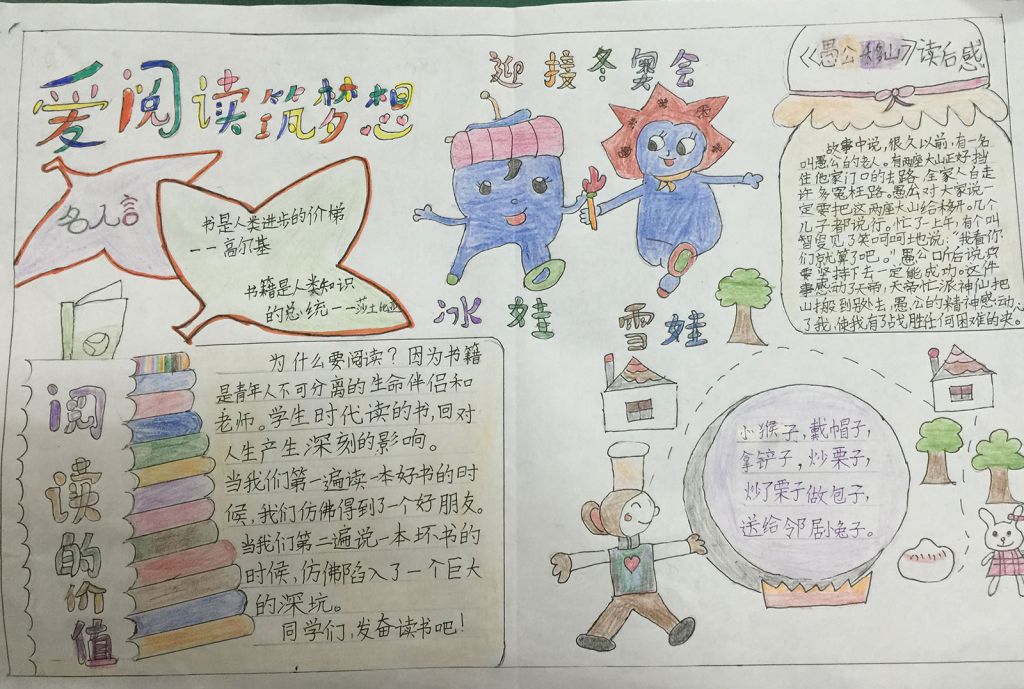 爱阅读筑梦想
名人言
书是人类进步的价梯
--高尔基
书籍是人类知识
的总统--莎士比亚
阅读的价值
为什么要阅读？因为书籍
是青年人不可分离的生命伴侣和
老师。学生时代读的书，回对
人生产生深刻的影响。
当我们第一遍读一本好书的时
候，我们仿佛得到了一个好朋友。
当我们第二遍说一本坏书的
时候，仿佛陷入了一个巨大
的深坑。
同学们，发奋读书吧！
迎接冬奥会
冰娃
雪娃
《愚公移山》读后感
故事中说，很久以前，有一名
叫愚公的老人。有两座大山正好挡
住他家门口的去路，全家人白走
许多冤枉路。愚公对大家说一
定要把这两座大山给移开。几个
儿子都说行。忙了一上午，有个叫
智叟见了笑呵呵地说：“我看你
们就算了吧。”愚公听后说只
要坚持下去一定能成功。这件
事感动了天帝，天帝忙派神仙把
山搬到别处去，愚公的精神感动
了我，使我有了战胜任何困难的决心
小猴子，戴帽子，
拿铲子，炒栗子，
炒了栗子做包子，
送给邻居小兔子。